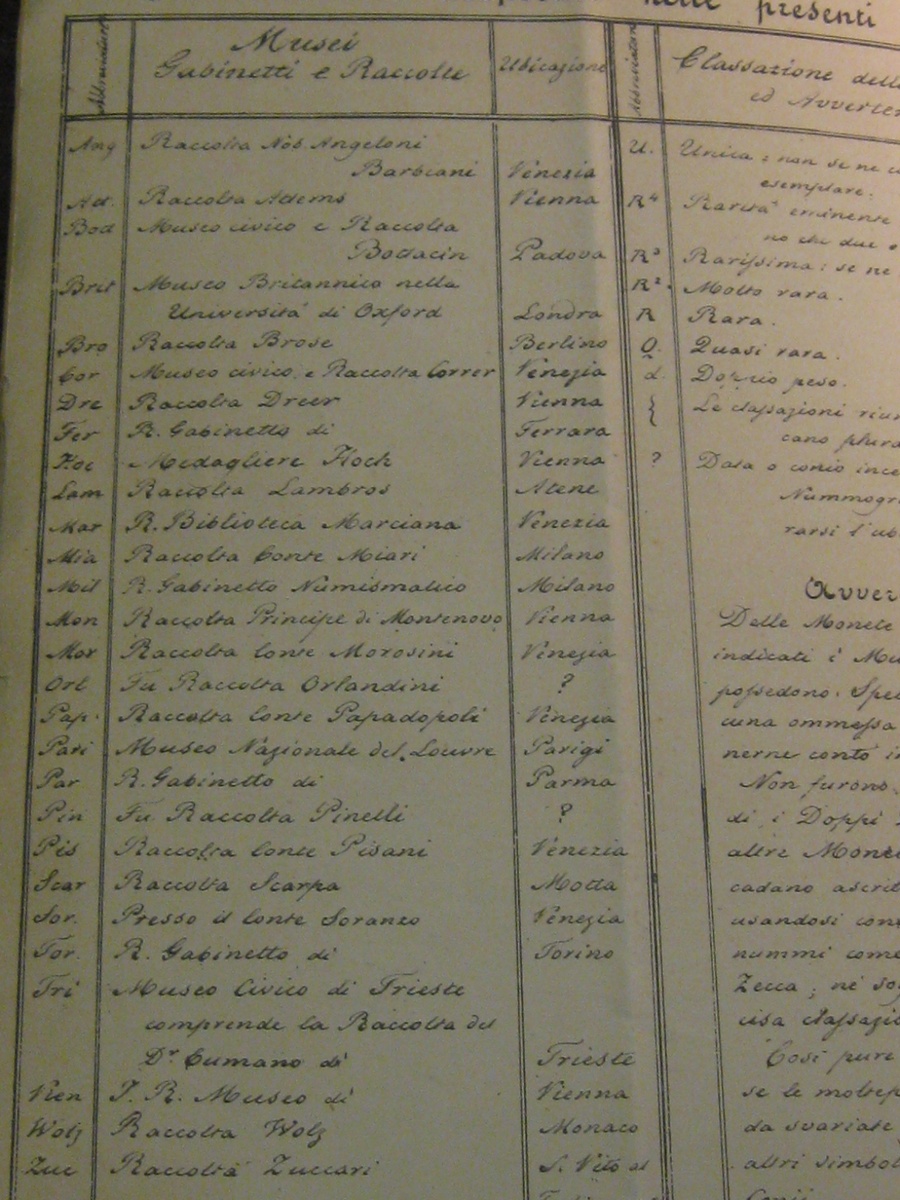 nelle presenti
Abbreviature
Musei
Gabinetti e Raccolte
Ubicazione
Abbreviature
Classazione delle
ed Avverten
Ang Raccolta Nob. Angeloni
Barbiani Venezia
Ad. Raccolta Adems Vienna
Bod Museo civico e Raccolta
Bottacin Padova
Brit Museo Britannico nella
Università di Oxford Londra
Bro Raccolta Brose Berlino
Cor Museo civico e Raccolta Correr Venezia
Dre Raccolta Dreer Vienna
Fer R. Gabinetto di Ferrara
Floc Medagliere Floch Vienna
Lam Raccolta Lambros Atene
Mar R. Biblioteca Marciana Venezia
Mia Raccolta Conte Miari Milano
Mil R. Gabinetto Numismatico Milano
Mon Raccolta Principe di Montenovo Vienna
Mor Raccolta Conte Morosini Venezia
Orl Fu Raccolta Orlandini ?
Pap. Raccolta Conte Papadopoli Venezia
Pari Museo Nazionale del Louvre Parigi
Par R. Gabinetto di Parma
Pin Fu Raccolta Pinelli ?
Pis Raccolta Conte Pisani Venezia
Scar Raccolta Scarpa Motta
Sor. Presso il Conte Soranzo Venezia
Tor. R. Gabinetto di Torino
Tri Museo Civico di Trieste
comprende la Raccolta del
Dr Cumano di Trieste
Vien I. R. Museo di Vienna
Wolz Raccolta Wolz Monaco
Zuc Raccolta Zuccari S. Vito al
U. Unica; non se ne c
esemplare.
R4 Rarità eminente
no che due o
R3 Rarissima: se ne
R2. Molto rara.
R Rara.
Q. Quasi rara.
d. Doppio peso.
{ Le classazioni riun
cano plura
? Data o conio ince
Nummogra
rarsi l'ub
Avver
Delle Monete
indicati i Mu
possedono. Spec
cuna ommessa
nerne conto in
Non furono
di i Doppi
altre Monet
cadano ascrit
usandosi con
nummi come
Zecca; nè sog
cisa classazio
Così pure
se le moltep
da svariate
altri simbol
Conii